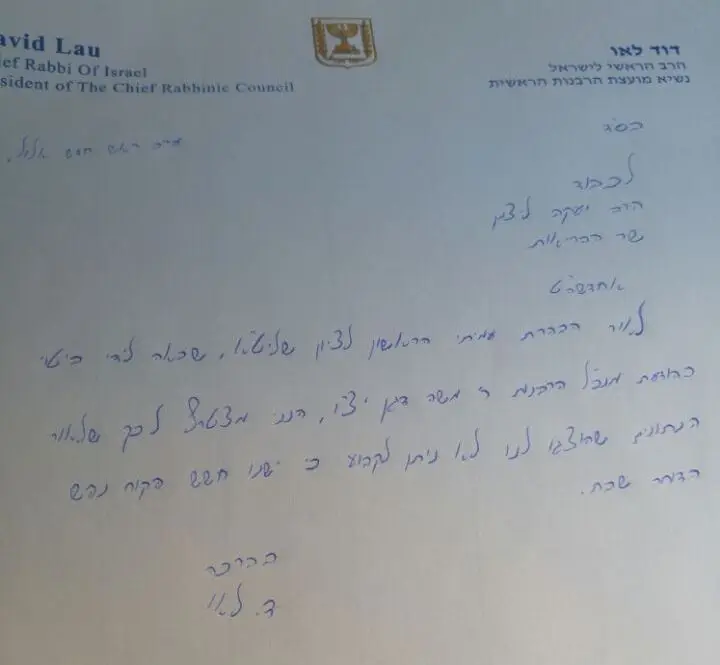 avid Lau
ef Rabbi Of Israel
sident of The Chief Rabbinic Council
דוד לאו
הרב הראשי לישראל
נשיא מועצת הרבנות הראשית
בס"ד
ראש חודש אלול
לכבוד
הרב יעקב ליצמן
שר הבריאות
אחדשה"ט
לאור הכרת עמיתי הראשון לציון שליט"א, שבאה לידי ביטוי
בהודעת מנכ"ל הרבנות ר' משה דגן יצ"ו, הנני מצטרף לכך שלאור
הנתונים שהוצגו לנו לא ניתן לקבוע כי ישנו חשש פקוח נפש
הדוחה שבת.
בברכה
ד. לאו